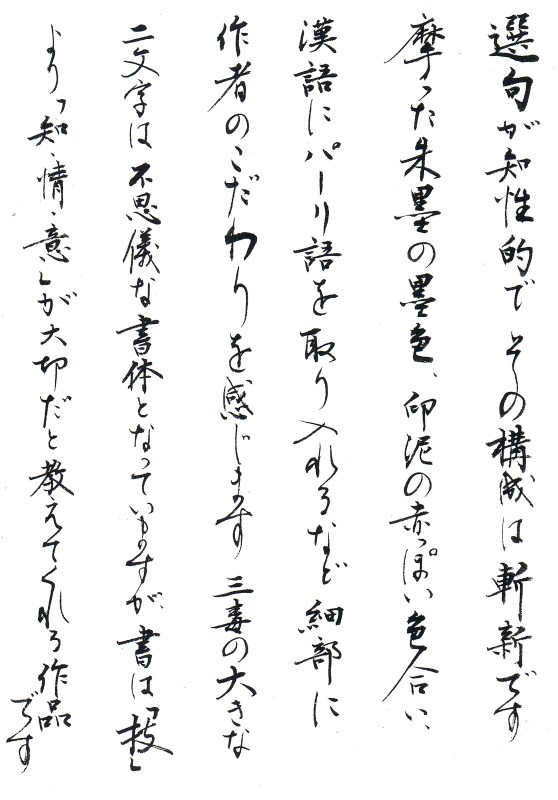 選句が知性的で その構成は斬新です
摩った朱墨の墨色、印泥の赤っぽい色合い、
漢語にパーリ語を取り入れるなど細部に
作者のこだわりを感じます 三毒の大きな
二文字は不思儀な書体となっていますが、書は「技」
より「知、情、意」が大切だと教えてくれる作品です